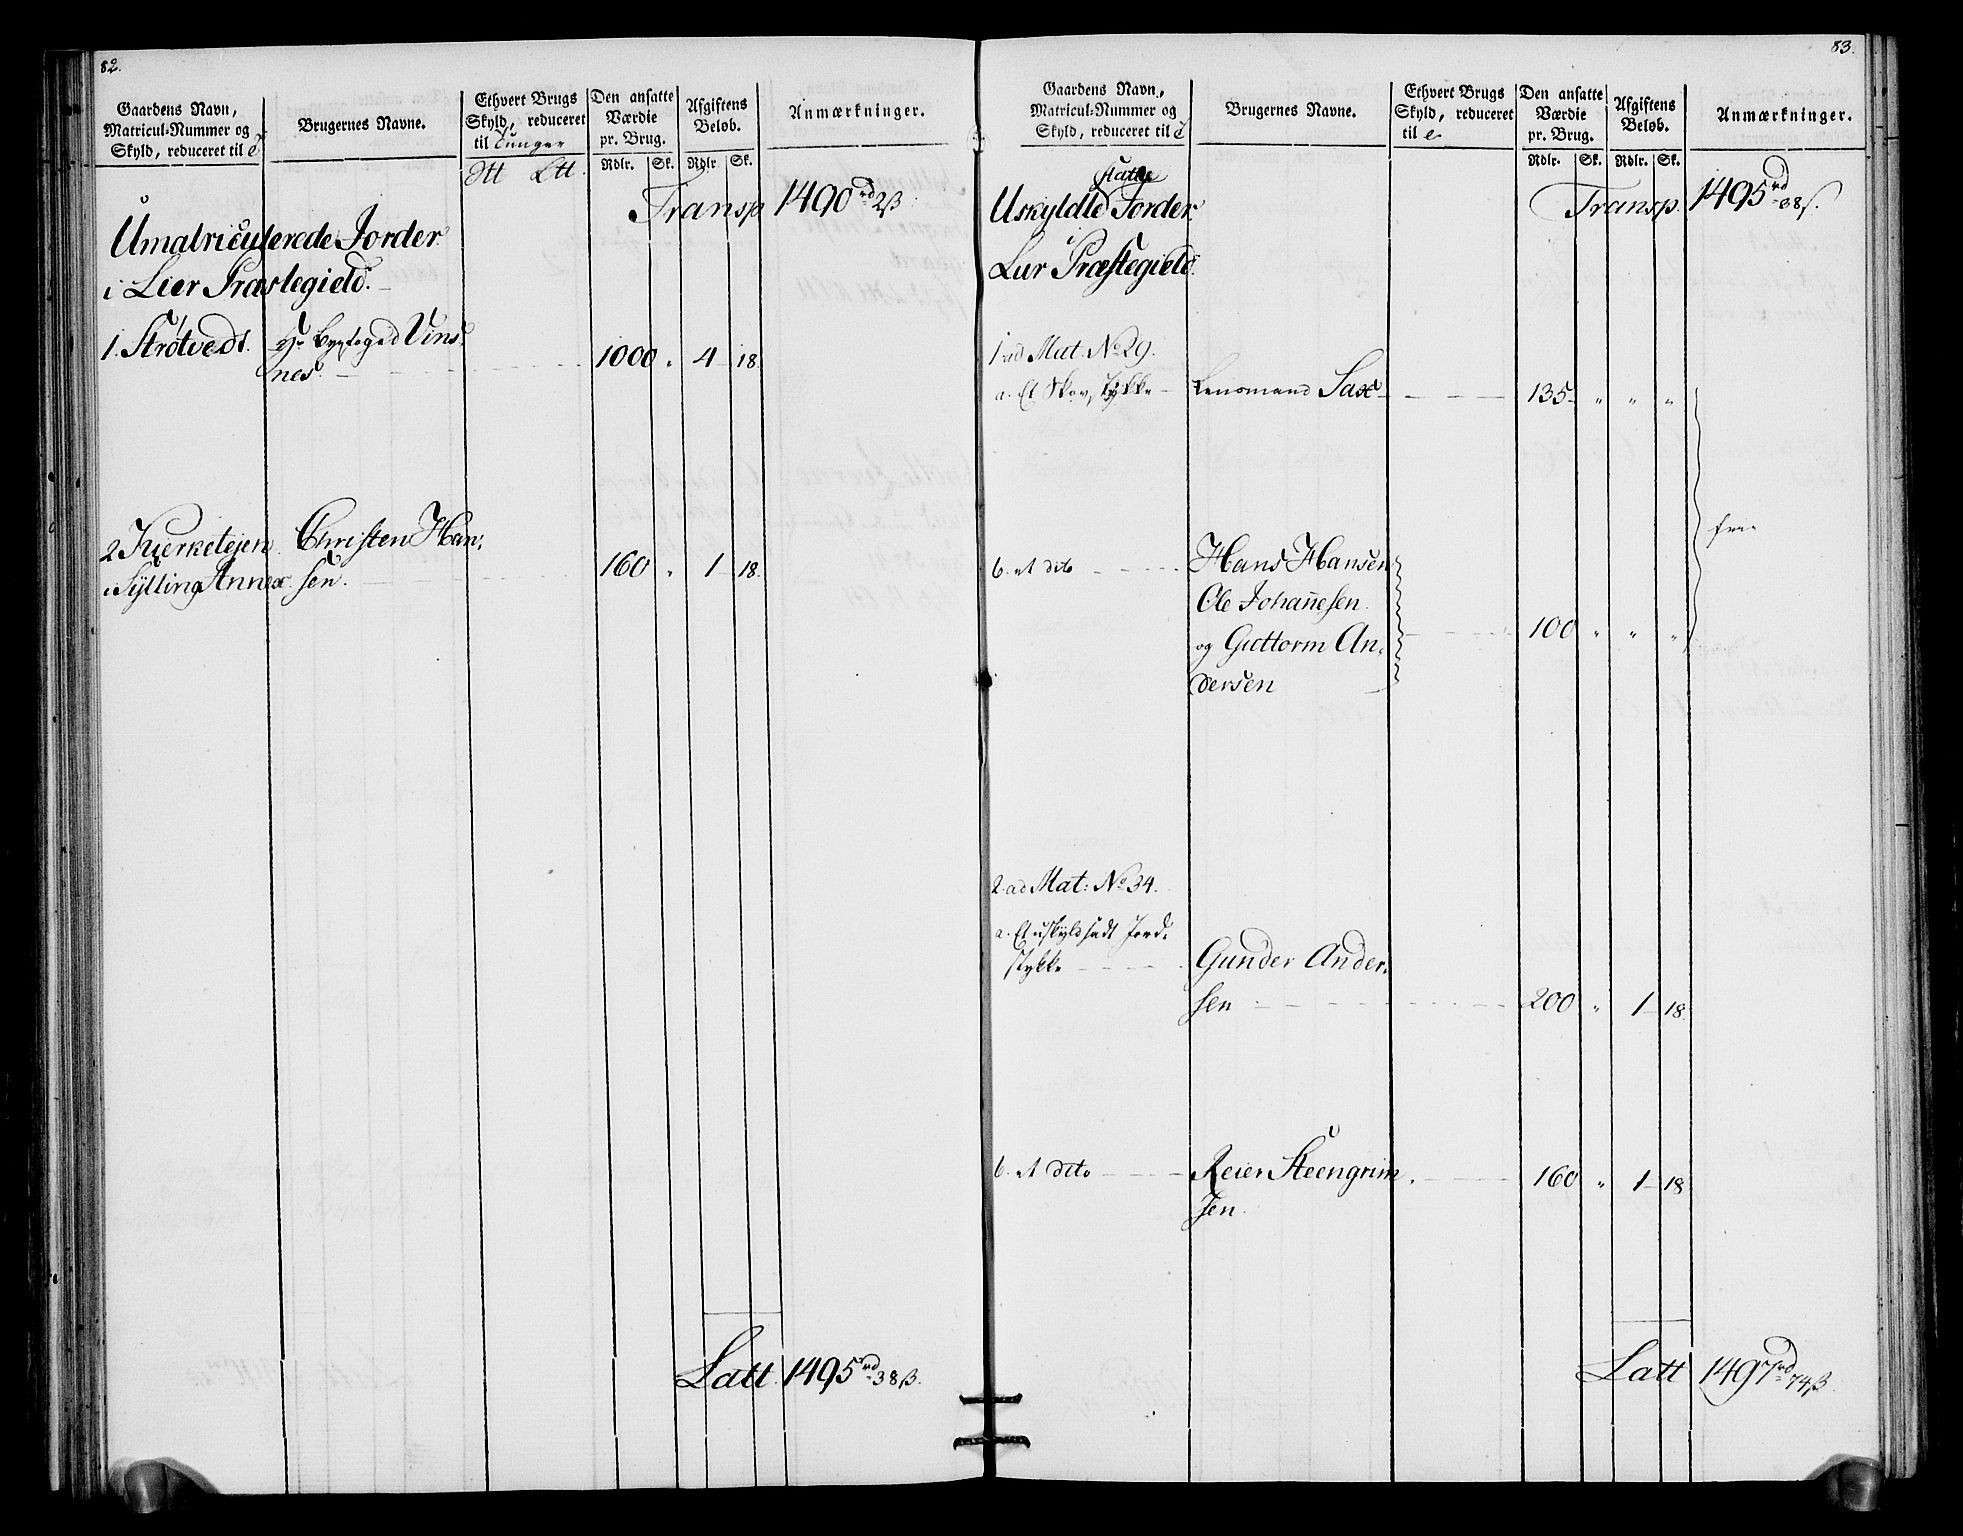 82.
Gaardens Navn,
Matricul-Nummer og
Skyld, reduceret til
Brugernes Navne.
Ethvert Brugs
Skyld, reduceret
til Tunger
Den ansatte
Værdie
pr. Brug.
Afgiftens
Beløb.
Anmærkninger.
Rdlr. Sk. Rdlr. Sk.
Transp 1490 rd 2 ß
Umatriculerede Jorder
i Lier Præstegield.
1. Strøtvedt. Hr Byefoged Vins-
nes. 1000 " 4 18.
2 Kierketejen Christen Han-
i Sylling Annex sen. 160 " 1 18.
Latt. 1495 rd 38 ß.
83.
Gaardens Navn,
Matricul-Nummer og
Skyld, reduceret til
Brugernes Navne.
Ethvert Brugs
Skyld, reduceret
til
Den ansatte
Værdie
pr. Brug.
Afgiftens
Beløb.
Anmærkninger.
Rdlr. Sk. Rdlr. Sk.
Transp. 1495 rd 38 ß.
Uskyldsatte Jorder
i
Lier Præstegield.
1 ad Mat. No 29.
a. Et Skovstykke Lensmand Sax 135 " " "
frie
b. et dito Hans Hansen
Ole Johannesen
og Guttorm An-
dersen 100 " " "
2 ad Mat: No 34.
a. Et uskyldsadt Jord-
stykke Gunder Ander-
sen 200 " 1 18.
b. et dito Reier Steengrim-
sen. 160 " 1 18
Latt 1497 rd 74 ß.